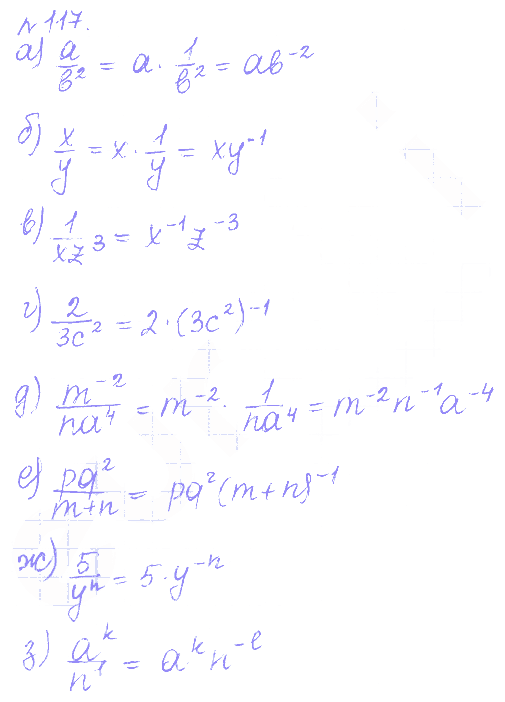 №117.
а) a/b² = a · 1/b² = ab⁻²
б) x/y = x · 1/y = xy⁻¹
в) 1/xz³ = x⁻¹z⁻³
г) 2/3c² = 2 · (3c²)⁻¹
д) m⁻²/na⁴ = m⁻² · 1/na⁴ = m⁻²n⁻¹a⁻⁴
е) pq²/m+n = pq²(m+n)⁻¹
ж) 5/yⁿ = 5 · y⁻ⁿ
з) aᵏ/n¹ = aᵏn⁻ˡ